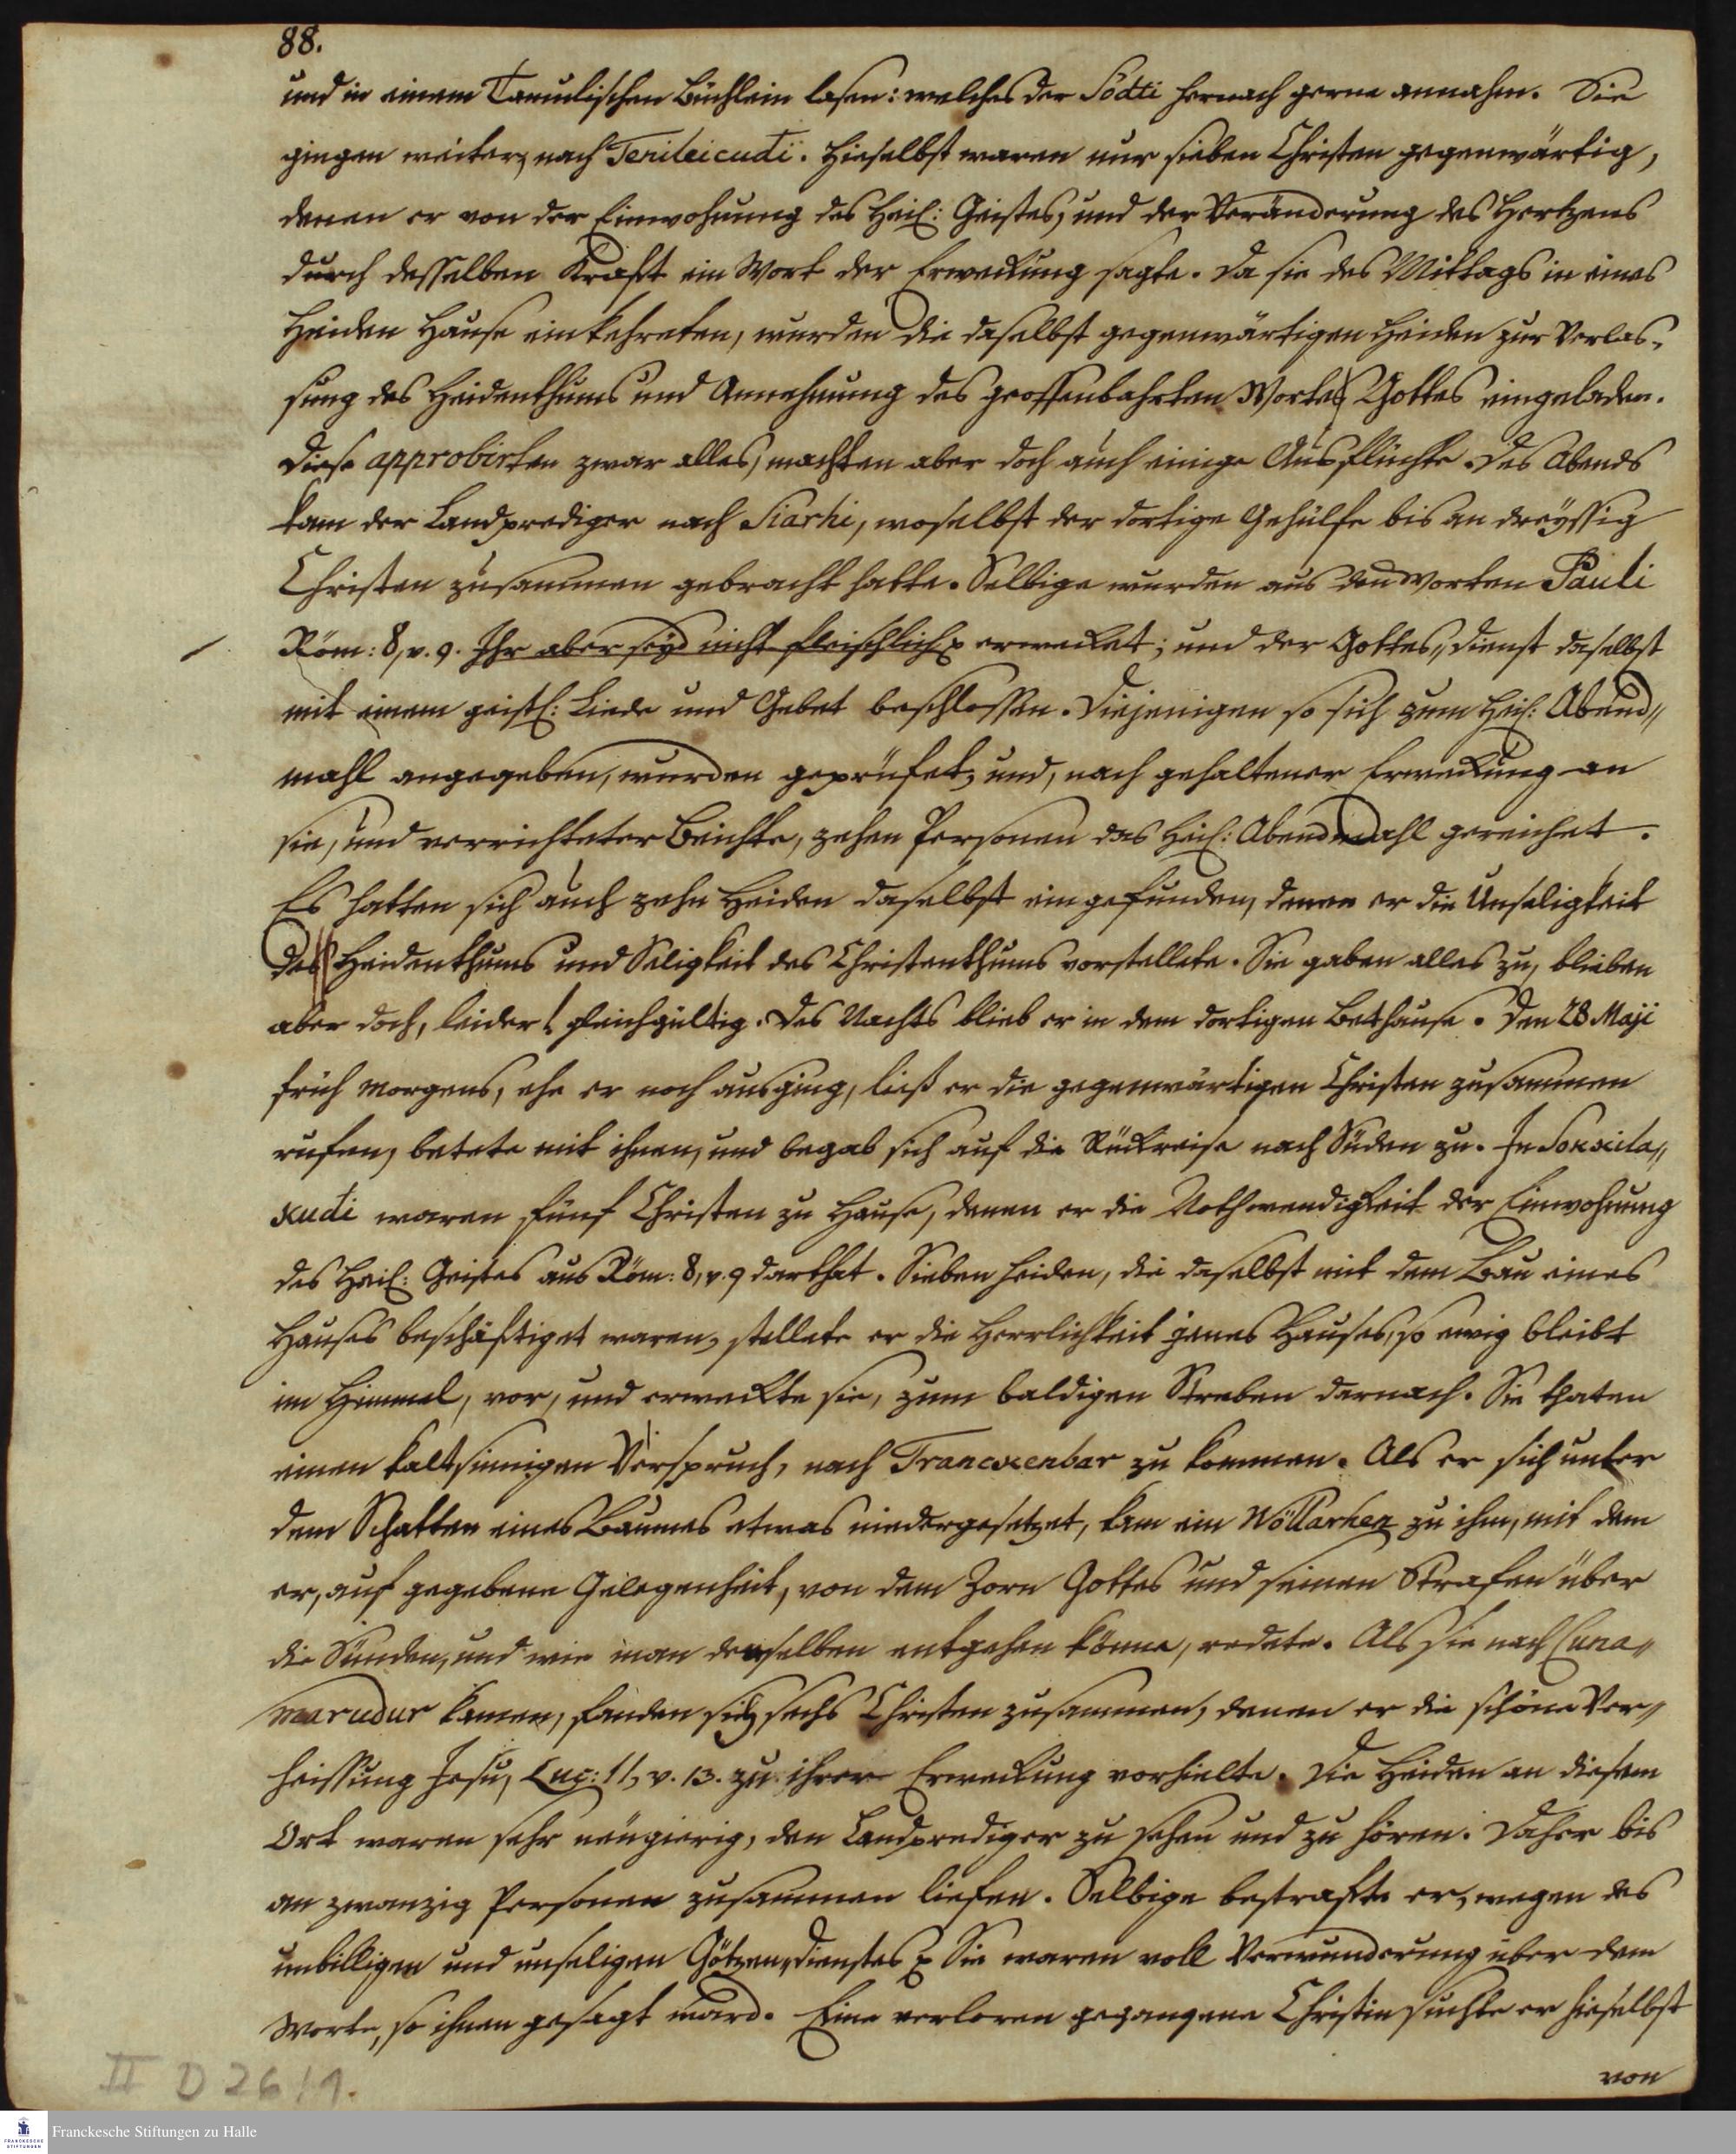 88.
und in einem Tamulischen Büchlein lasen: welches der Södti hernach gerne annahm. Sie
gingen weiter, nach Tenileicudi. Hieselbst waren nur sieben Christen gegenwärtig,
denen er von der Einwohnung des Heil: Geistes, und der Veränderung des Hertzens
durch desselben Kraft ein Wort der Erweckung sagte. Da sie des Mittags in eines
Heiden Hause einkehreten, wurden die daselbst gegenwärtigen Heiden zur Verlas-
sung des Heidenthums und Annehmung des geoffenbahrten Wortes Gottes eingeladen.
Diese approbirten zwar alles, machten aber doch auch einige Ausflüchte. Des Abends
kam der Landprediger nach Siarhi, woselbst der dortige Gehülfe bis an dreyssig
Christen zusammen gebracht hatte. Selbige wurden aus den Worten Pauli
Röm: 8, v. 9. Ihr aber seyd nicht fleischlich erwecket; und der Gottes„dienst daselbst
mit einem geistl: Liede und Gebet beschlossen. Diejenigen so sich zum Heil: Abend„
mahl angegeben, wurden geprüfet, und, nach gehaltener Erweckung an
sie, und verrichteter Beichte, zehen Personen das Heil: Abendmahl gereichet.
Es hatten sich auch zehn Heiden daselbst eingefunden, denen er die Unseligkeit
des Heidenthums und Seligkeit des Christenthums vorstellete. Sie gaben alles zu, blieben
aber doch, leider! gleichgültig. Des Nachts blieb er in dem dortigen Bethause. Den 28 Maji
früh morgens, ehe er noch ausging, ließ er die gegenwärtigen Christen zusammen
rufen, betete mit ihnen, und begab sich auf die Rückreise nach Süden zu. In Sorkila„
kudi waren fünf Christen zu Hause, denen er die Nothwendigkeit der Einwohnung
des Heil: Geistes aus Röm: 8, v. 9 darthat. Sieben Heiden, die daselbst mit dem Bau eines
Hauses beschäftiget waren, stellete er die Herrlichkeit jenes Hauses, so ewig bleibt
im Himmel, vor, und erweckte sie, zum baldigen Streben darnach. Sie thaten
einen kaltsinnigen Verspruch, nach Tranckenbar zu kommen. Als er sich unter
dem Schatten eines Baumes etwas niedergesetzet, kam ein Wöllarhen zu ihm, mit dem
er, auf gegebene Gelegenheit, von dem Zorn Gottes und seinen Strafen über
die Sünden, und wie man denselben entgehen könne, redete. Als sie nach Cuna„
marudur kamen, fanden sich sechs Christen zusammen, denen er die schöne Ver„
heissung Jesu, Luc: 11, v. 13. zu ihrer Erweckung vorhielte. Die Heiden an diesem
Ort waren sehr neugierig, den Landprediger zu sehen und zu hören. Daher bis
an zwanzig Personen zusammen liefen. Selbige bestrafte er, wegen des
unbilligen und unseligen Götzen„dienstes Sie waren voll Verwunderung über dem
Worte, so ihnen gesagt ward. Eine verloren gegangene Christin suchte er hieselbst
von
II D 26/1.
FRANCKESCHE
STIFTUNGEN
Franckesche Stiftungen zu Halle